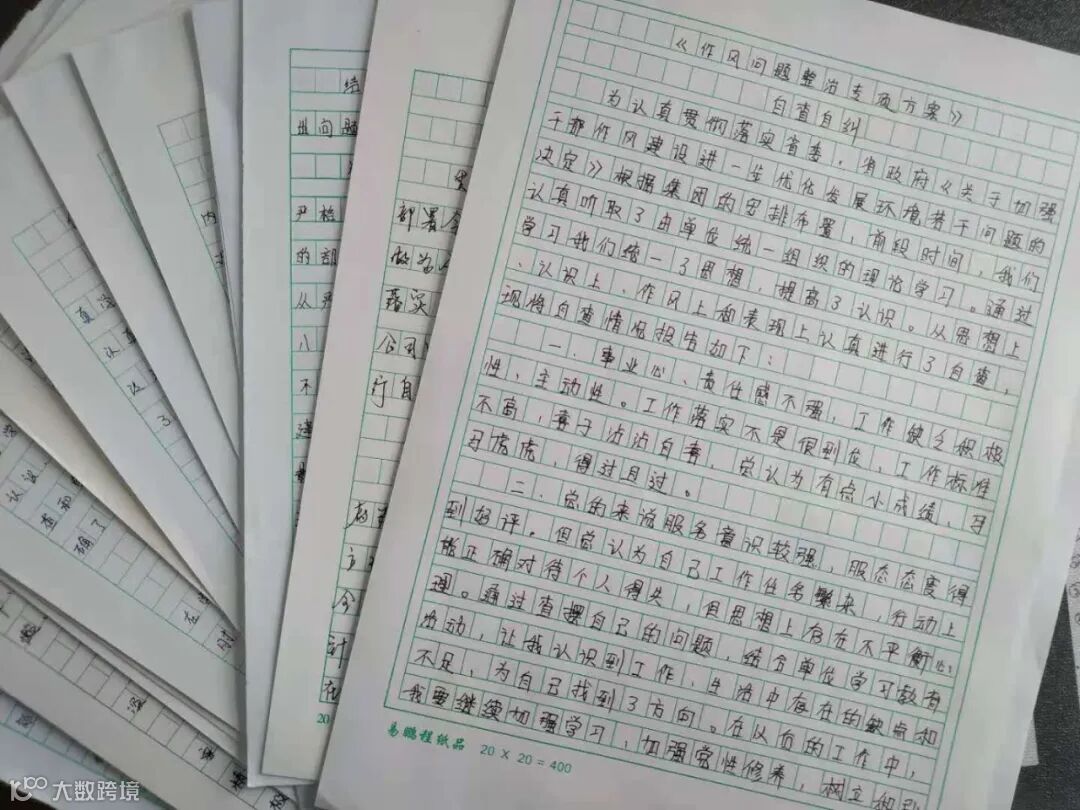 《作风问题整治专项方案》
自查自纠
为认真贯彻落实省委，省政府《关于加强
干部作风建设进一步优化发展环境若干问题的
决定》根据集团的安排布置，前段时间，我们
认真听取了由单位统一组织的理论学习。通过
学习我们统一了思想，提高了认识。从思想上
、认识上、作风上和表现上认真进行了自查，
现将自查情况报告如下：
一、事业心、责任感不强，工作缺乏积极
性、主动性。工作落实不是很到位，工作标准
不高，喜于沾沾自喜，总认为有点小成绩，马
马虎虎，得过且过。
二、总的来说服务意识较强，服态态度得
到好评。但总认为自己工作任务繁来，行动上
能正确对待个人得失，但思想上存在不平衡心
理。通过查摆自己的问题，结合单位学习教育
活动，让我认识到工作、生活中存在的缺点和
不足，为自己找到了方向。在以后的工作中，
我要继续加强学习，加强党性修养，树立
易鹏程纸品 20 × 20 = 400
结
出问题
的部
从严
八
不
部署
做为
落实
公司
疗自
20
20
内
真
认真
达
了
认识
查和
确了
在
大数跨境